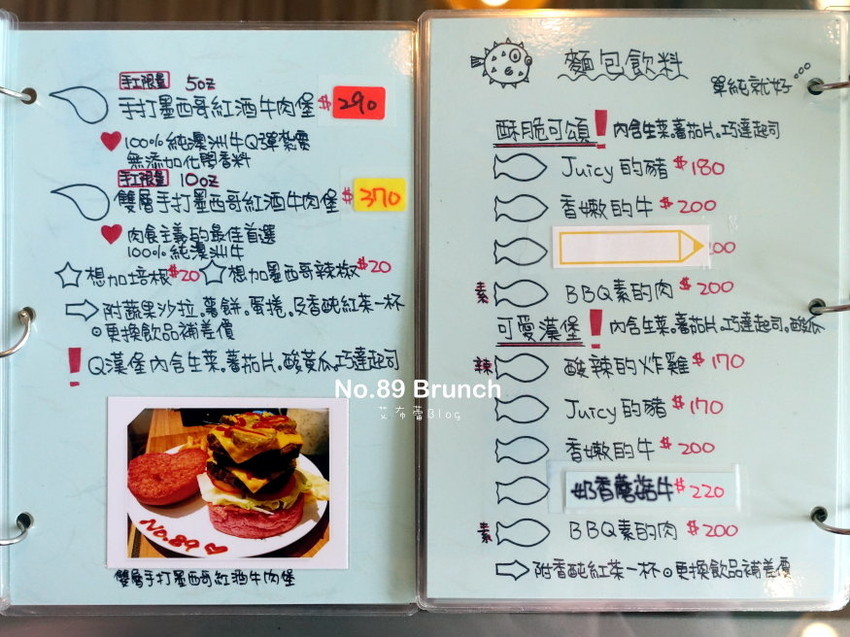 手工限量 5oz
手打墨西哥紅酒牛肉堡 $290
100%純澳洲牛Q彈紮實
無添加化學香料
手工限量 10oz
雙層手打墨西哥紅酒牛肉堡 $370
肉食主義的最佳首選
100%純澳洲牛
想加培根$20 想加墨西哥辣椒$20
附蔬果沙拉。薯餅。蛋捲。及香醇紅茶一杯
。更換飲品補差價
! Q漢堡內含生菜。蕃茄片。酸黃瓜。巧達起司
No.89
雙層手打墨西哥紅酒牛肉堡
No.89 Brunch
艾布蕾Blog
麵包飲料
單純就好
酥脆可頌! 內含生菜。蕃茄片。巧達起司
Juicy的豬 $180
香嫩的牛 $200
00
素 BBQ素的肉 $200
可愛漢堡! 內含生菜。蕃茄片。巧達起司。酸瓜
辣 酸辣的炸雞 $170
Juicy的豬 $170
香嫩的牛 $200
奶香蘑菇牛 $220
素 BBQ素的肉 $200
附香醇紅茶一杯。更換飲品補差價